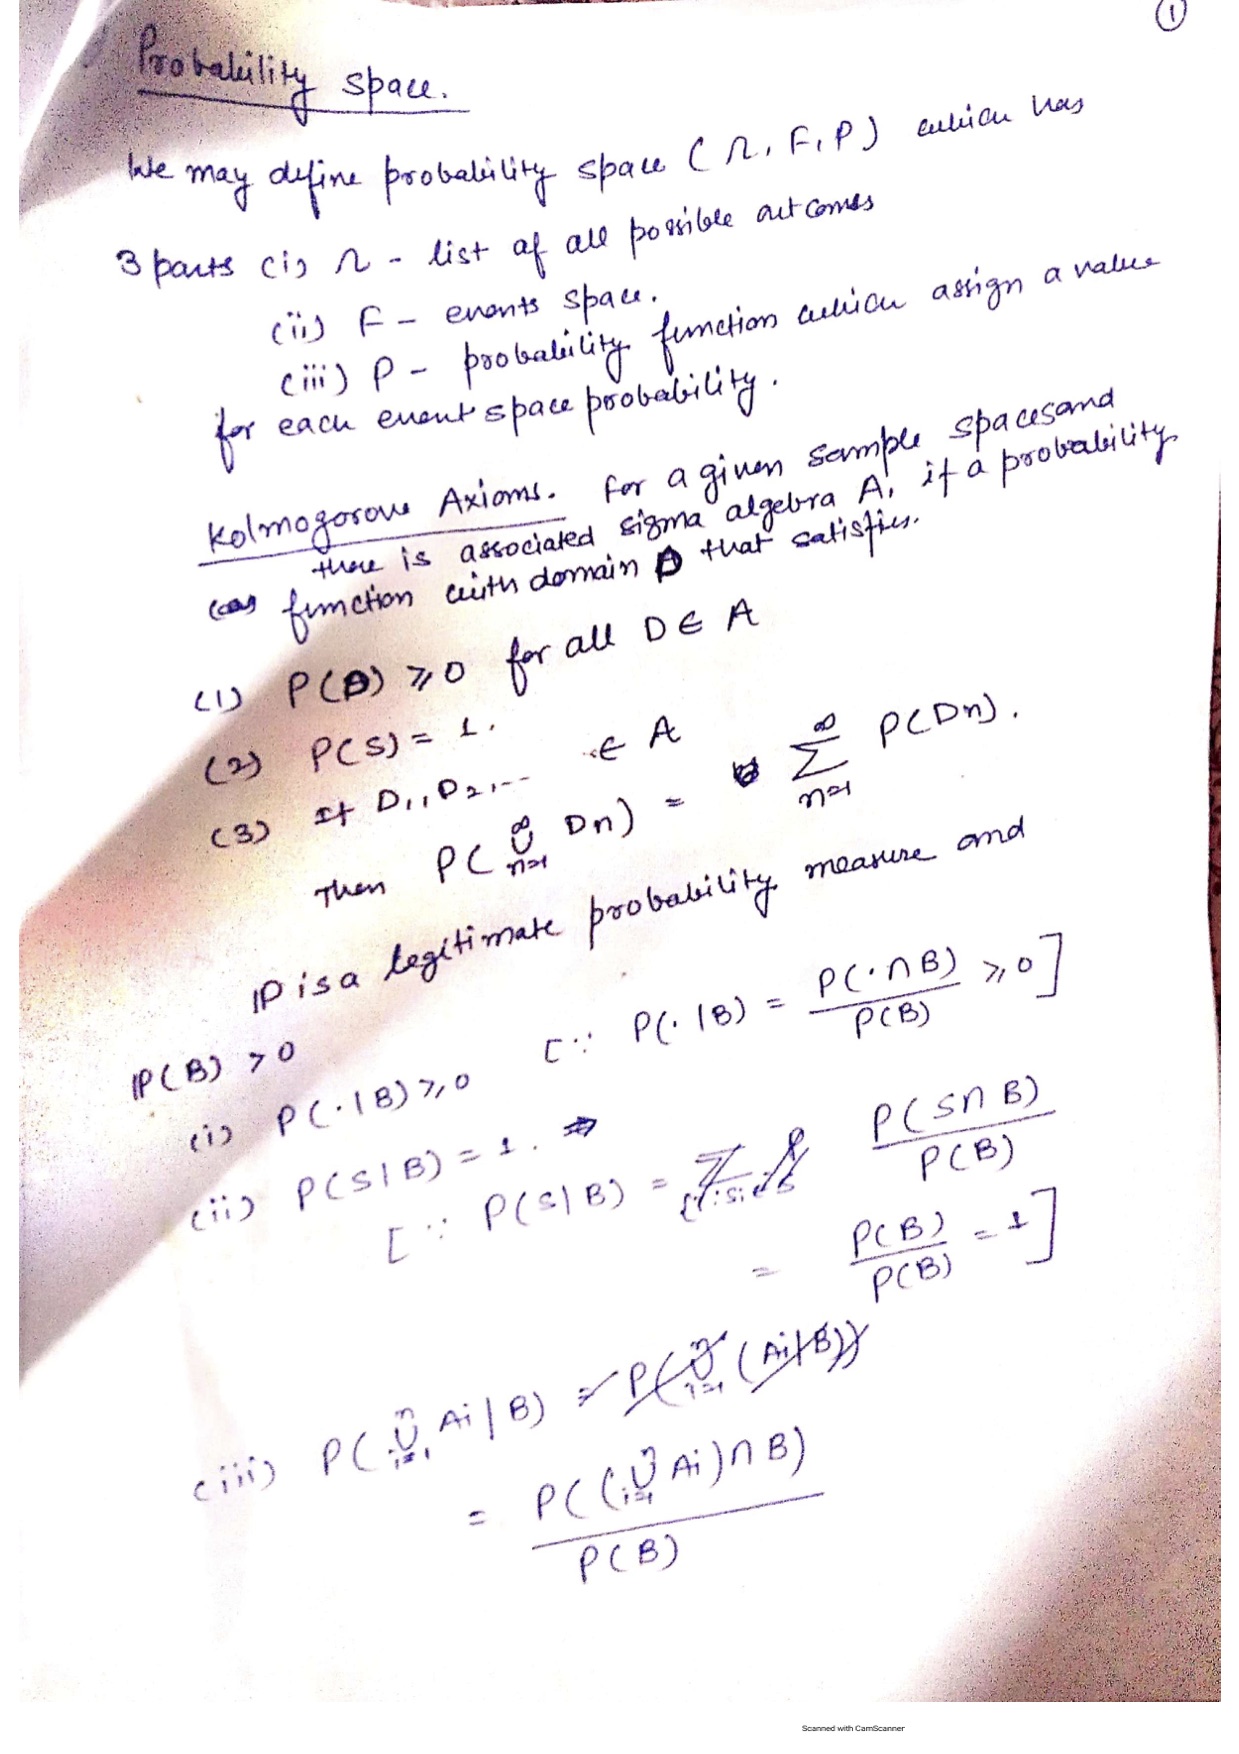 ①
Probability space.
We may define probability space (Ω, F, P) which has
3 parts (i) Ω - list of all possible outcomes
(ii) F - events space.
(iii) P - probability function which assign a value
for each event space probability.
Kolmogorove Axioms. For a given sample space S and
there is associated sigma algebra A, if a probability
function with domain D that satisfies.
(1) P(D) ≥ 0 for all D ∈ A
(2) P(S) = 1.
(3) If D₁, D₂, ... ∈ A
Then P(⋃_{n=1}^{∞} Dn) = ∑_{n=1}^{∞} P(Dn).
P is a legitimate probability measure and
P(B) > 0
(i) P(·|B) ≥ 0 [∵ P(·|B) = P(·∩B) / P(B) ≥ 0]
(ii) P(S|B) = 1. ⇒
[∵ P(S|B) = P(S∩B) / P(B)
= P(B) / P(B) = 1]
(iii) P(⋃_{i=1}^{n} Ai | B) = P(⋃_{i=1}^{n} (Ai|B))
= P((⋃_{i=1}^{n} Ai) ∩ B) / P(B)
Scanned with CamScanner